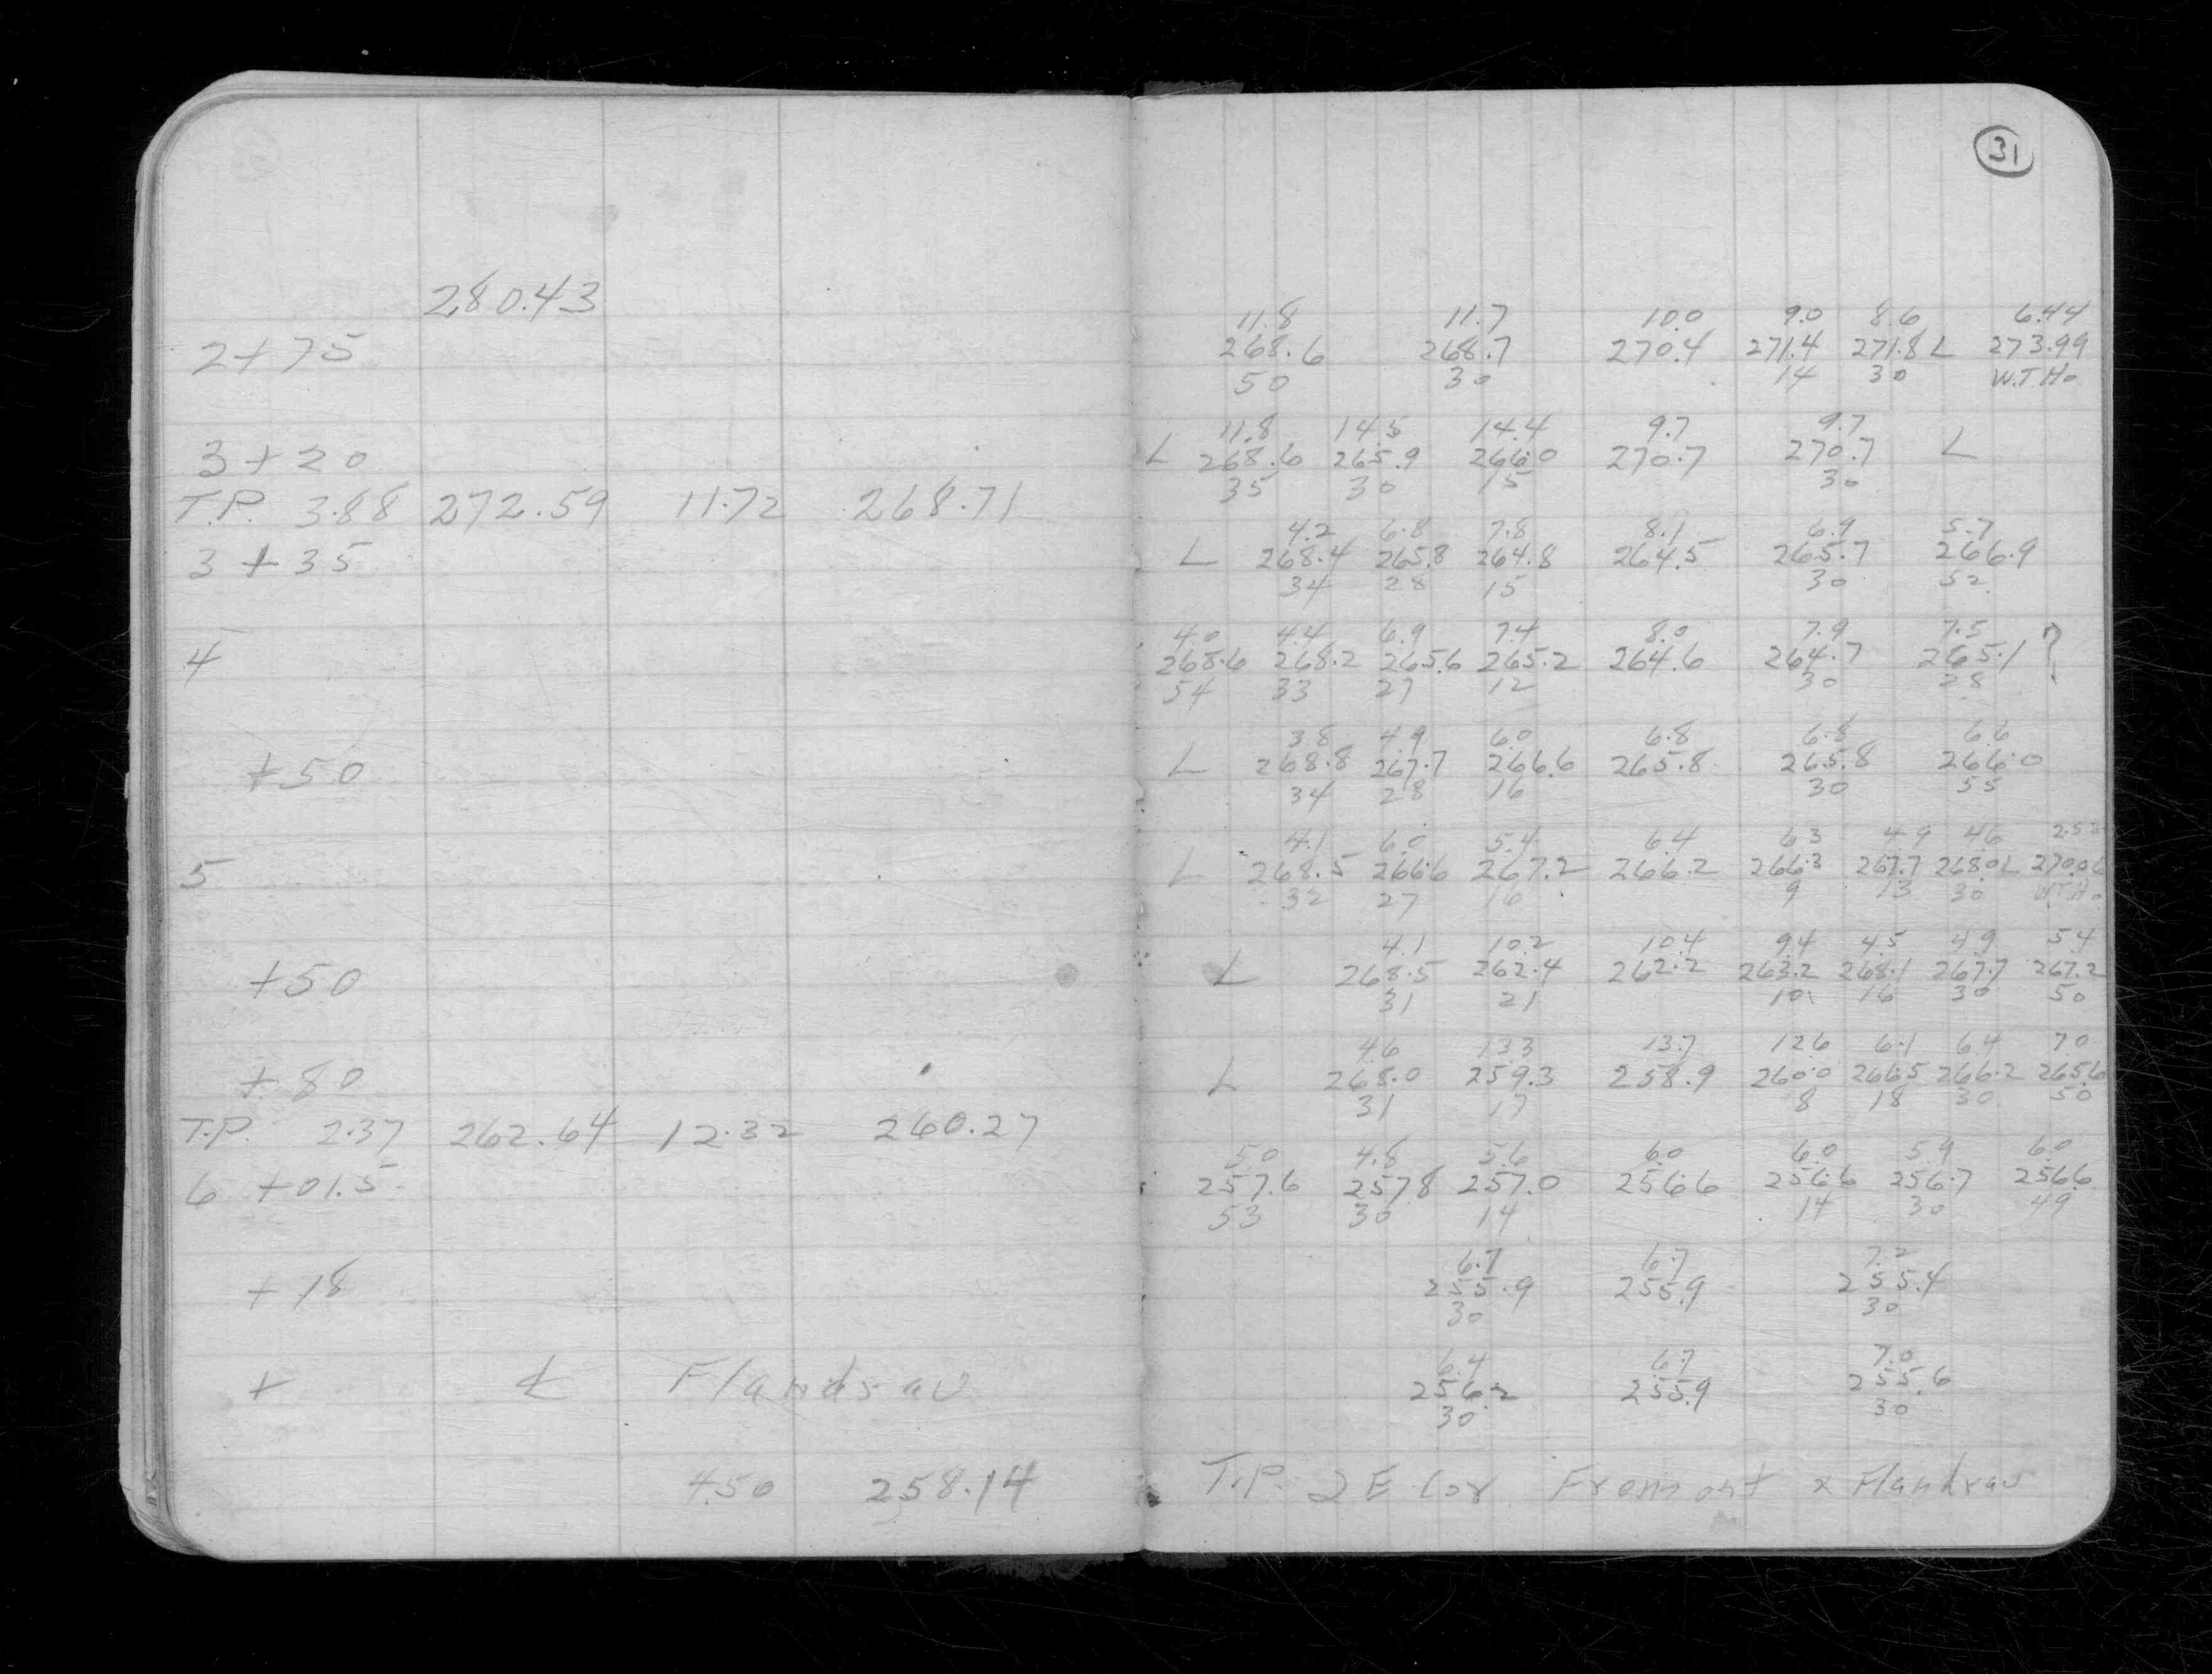 280.43
2+75
3+20
T.P. 3.88 272.59 11.72 268.71
3+35
4
+50
5
+50
+80
T.P. 2.37 262.64 12.32 260.27
6 +01.5
+18
+ ℄ Flandrau
4.50 258.14
31
11.8 11.7 10.0 9.0 8.6 6.44
268.6 268.7 270.4 271.4 271.8 L 273.99
50 30 14 30 W.T.Ho
11.8 14.5 14.4 9.7 9.7
L 268.6 265.9 266.0 270.7 270.7 L
35 30 15 30
4.2 6.8 7.8 8.1 6.9 5.7
L 268.4 265.8 264.8 264.5 265.7 266.9
34 28 15 30 52
4.0 4.4 6.9 7.4 8.0 7.9 7.5
268.6 268.2 265.6 265.2 264.6 264.7 265.1 ?
54 33 27 12 30 28
3.8 4.9 6.0 6.8 6.8 6.6
L 268.8 267.7 266.6 265.8 265.8 266.0
34 28 16 30 55
4.1 6.0 5.4 6.4 6.3 4.9 4.6 2.53
L 268.5 266.6 267.2 266.2 266.3 267.7 268.0 L 270.06
32 27 16 9 13 30 W.T.Ho
4.1 10.2 10.4 9.4 4.5 4.9 5.4
L 268.5 262.4 262.2 263.2 268.1 267.7 267.2
31 21 10 16 30 50
4.6 13.3 13.7 12.6 6.1 6.4 7.0
L 268.0 259.3 258.9 260.0 266.5 266.2 265.6
31 17 8 18 30 50
5.0 4.8 5.6 6.0 6.0 5.9 6.0
257.6 257.8 257.0 256.6 256.6 256.7 256.6
53 30 14 14 30 49
6.7 6.7 7.2
255.9 255.9 255.4
30 30
6.4 6.7 7.0
256.2 255.9 255.6
30 30
T.P. 2 E Cor Fremont x Flandrau